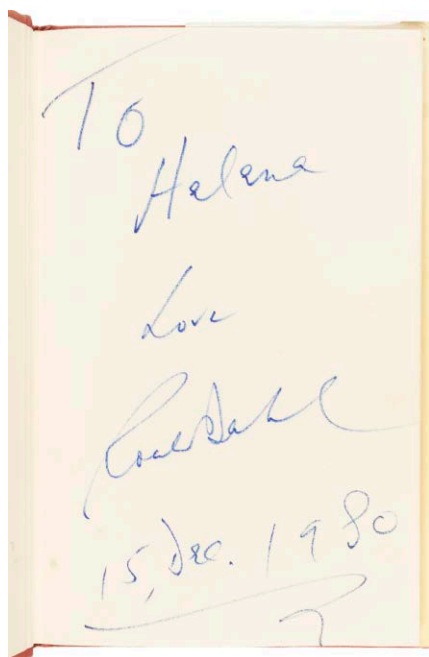 To
Helena
Love
Roald Dahl
15, Dec. 1980